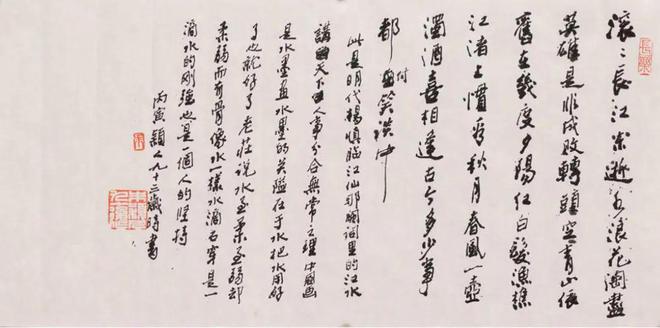 滚〻長江東逝水浪花淘盡
英雄是非成敗轉頭空青山依
舊在幾度夕陽紅白髮漁樵
江渚上慣看秋月春風一壺
濁酒喜相逢古今多少事
都付笑談中
此是明代楊慎臨江仙那闋词里的江水
講天下人事分合無常之理中國画
是水墨画水墨的关鍵在于水把水用好
了也就好了老莊说水至柔至弱却
柔弱而有骨像水一樣水滴石穿是一
滴水的剛強也是一個人的堅持
丙寅人九十三歲時書